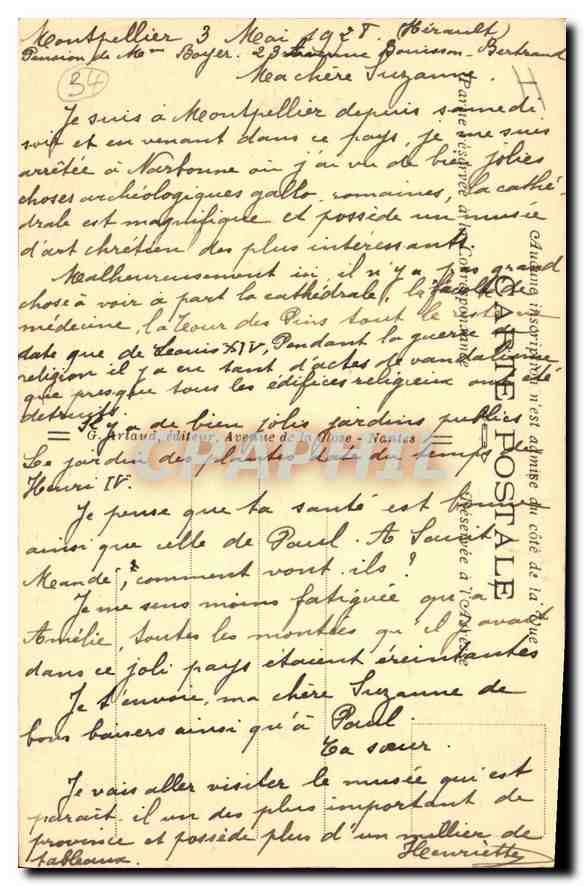 Montpellier 3 Mai 1928 (Hérault)
Pension de Mme Boyer. 23 Avenue Bouisson-Bertrand
34
H
Ma chère Suzanne.
Je suis à Montpellier depuis samedi
soir et en venant dans ce pays, je me suis
arrêtée à Narbonne où j'ai vu de bien jolies
choses archéologiques gallo-romaines, la cathé-
drale est magnifique et possède un musée
d'art chrétien des plus intéressants.
Malheureusement ici, il n'y a pas grand
chose à voir à part la cathédrale, la faculté de
médecine, la Tour des Pins tout le reste
date que de Louis XIV. Pendant la guerre de
religion il y a eu tant d'actes de vandalisme
que presque tous les édifices religieux ont été
detruits.
Il y a de bien jolis jardins publics
Le jardin des plantes date du temps
Henri IV.
Je pense que ta santé est bonne
ainsi que celle de Paul. A Saint
Mandé, comment vont-ils?
Je me sens moins fatiguée qu'à
Amélie, toutes les montées qu'il y avait
dans ce joli pays étaient éreintantes
Je t'envoie, ma chère Suzanne de
bons baisers ainsi qu'à Paul.
Ta sœur.
Henriette
Je vais aller visiter le musée qui est
parait-il un des plus important de
province et possède plus d'un millier de
tableaux.
G. Artaud, éditeur, Avenue de la Close - Nantes
CARTE POSTALE
Aucune inscription n'est admise du côté de la Vue
Partie réservée à la Correspondance
Réservée à l'Adresse
CPAPHIL